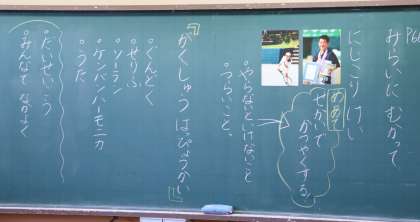 P66
みらいに むかって
にしこり けい
めあて
せかいで
かつやくする。
・やらないといけないこと
・つらいこと。
『がくしゅうはっぴょうかい』
・ぐんどく
・せりふ
・ソーラン
・ケンバンハーモニカ
・うた
・だいせいこう
・みんなで なかよく